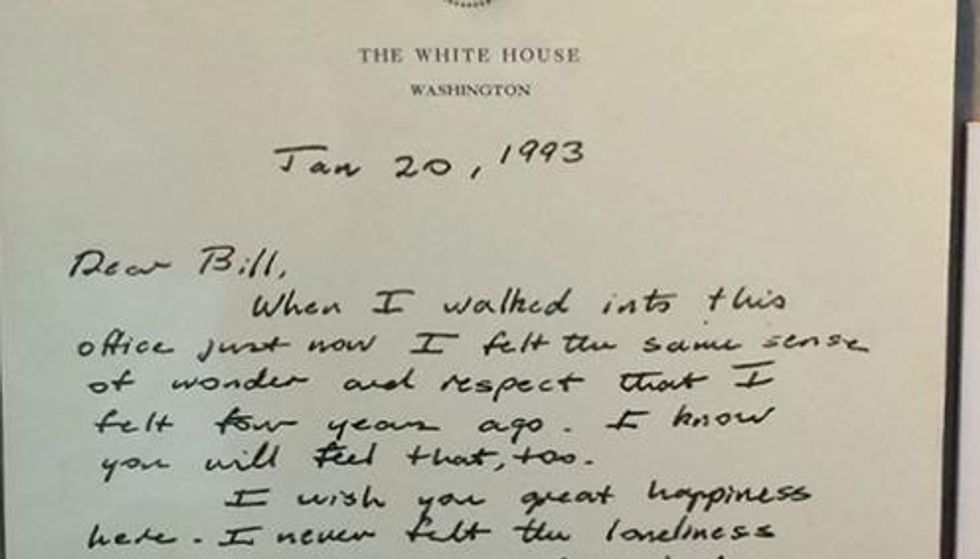 THE WHITE HOUSE
WASHINGTON
Jan 20, 1993
Dear Bill,
When I walked into this
office just now I felt the same sense
of wonder and respect that I
felt four years ago. I know
you will feel that, too.
I wish you great happiness
here. I never felt the loneliness